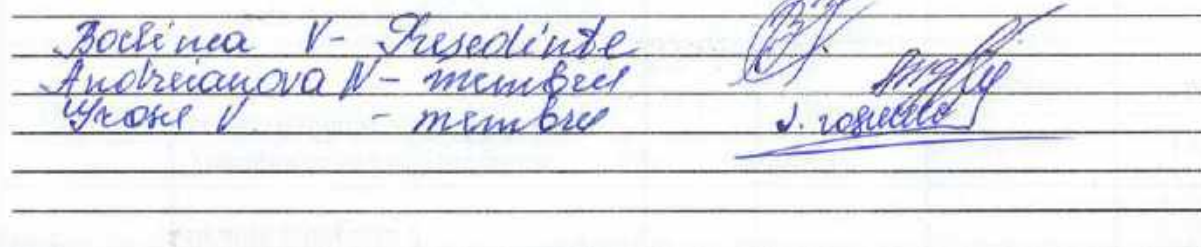 Bocinea V - Presedinte
Andreianova N - membru
Grosu V - membru